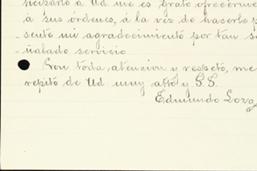 cisarlo á Ud me es grato ofrecerme
á sus órdenes, á la vez de hacerlo p
sente mi agradecimiento por tan se
ñalado servicio.
Con toda atencion y respeto, me
repito de Ud muy atto y S. S.
Edmundo Loza